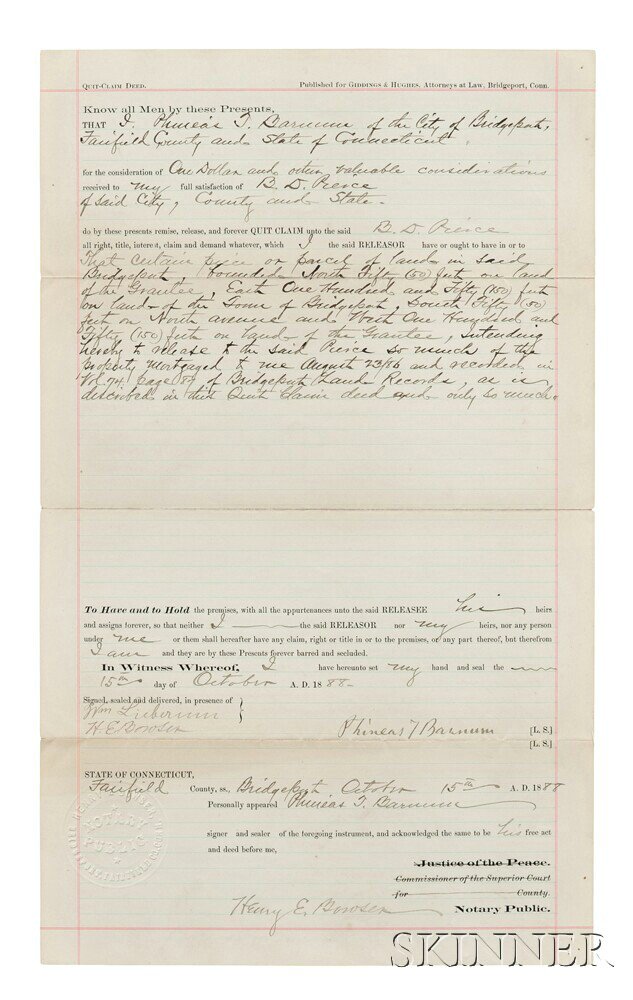 QUIT-CLAIM DEED. Published for GIDDINGS & HUGHES, Attorneys at Law, Bridgeport, Conn.
Know all Men by these Presents,
THAT I, Phineas T. Barnum of the City of Bridgeport,
Fairfield County and State of Connecticut,
for the consideration of One Dollar and other valuable considerations
received to my full satisfaction of B. D. Pierce
of said City, County and State.
do by these presents remise, release, and forever QUIT CLAIM unto the said B. D. Pierce
all right, title, interest, claim and demand whatever, which I the said RELEASOR have or ought to have in or to
That certain piece or parcel of land in said
Bridgeport, bounded North Fifty (50) feet on land
of the Grantee, East One Hundred and Fifty (150) feet
on land of the Town of Bridgeport, South Fifty (50)
feet on North avenue and West One Hundred and
Fifty (150) feet on land of the Grantee, intending
hereby to release to the said Pierce so much of the
property mortgaged to me August 23/86 and recorded in
Vol 74, page 87 of Bridgeport Land Records, as is
described in this Quit Claim deed and only so much.
To Have and to Hold the premises, with all the appurtenances unto the said RELEASEE his heirs
and assigns forever, so that neither I the said RELEASOR nor my heirs, nor any person
under me or them shall hereafter have any claim, right or title in or to the premises, or any part thereof, but therefrom
I am and they are by these Presents forever barred and secluded.
In Witness Whereof, I have hereunto set my hand and seal the
15th day of October A. D. 1888
Signed, sealed and delivered, in presence of
Wm Lieberum
H. E. Bowser Phineas T Barnum [L. S.]
[L. S.]
STATE OF CONNECTICUT,
Fairfield County, ss., Bridgeport October 15th A. D. 1888
Personally appeared Phineas T. Barnum
signer and sealer of the foregoing instrument, and acknowledged the same to be his free act
and deed before me,
Justice of the Peace.
Commissioner of the Superior Court
for County.
Henry E. Bowser Notary Public.
NOTARY
PUBLIC
SKINNER